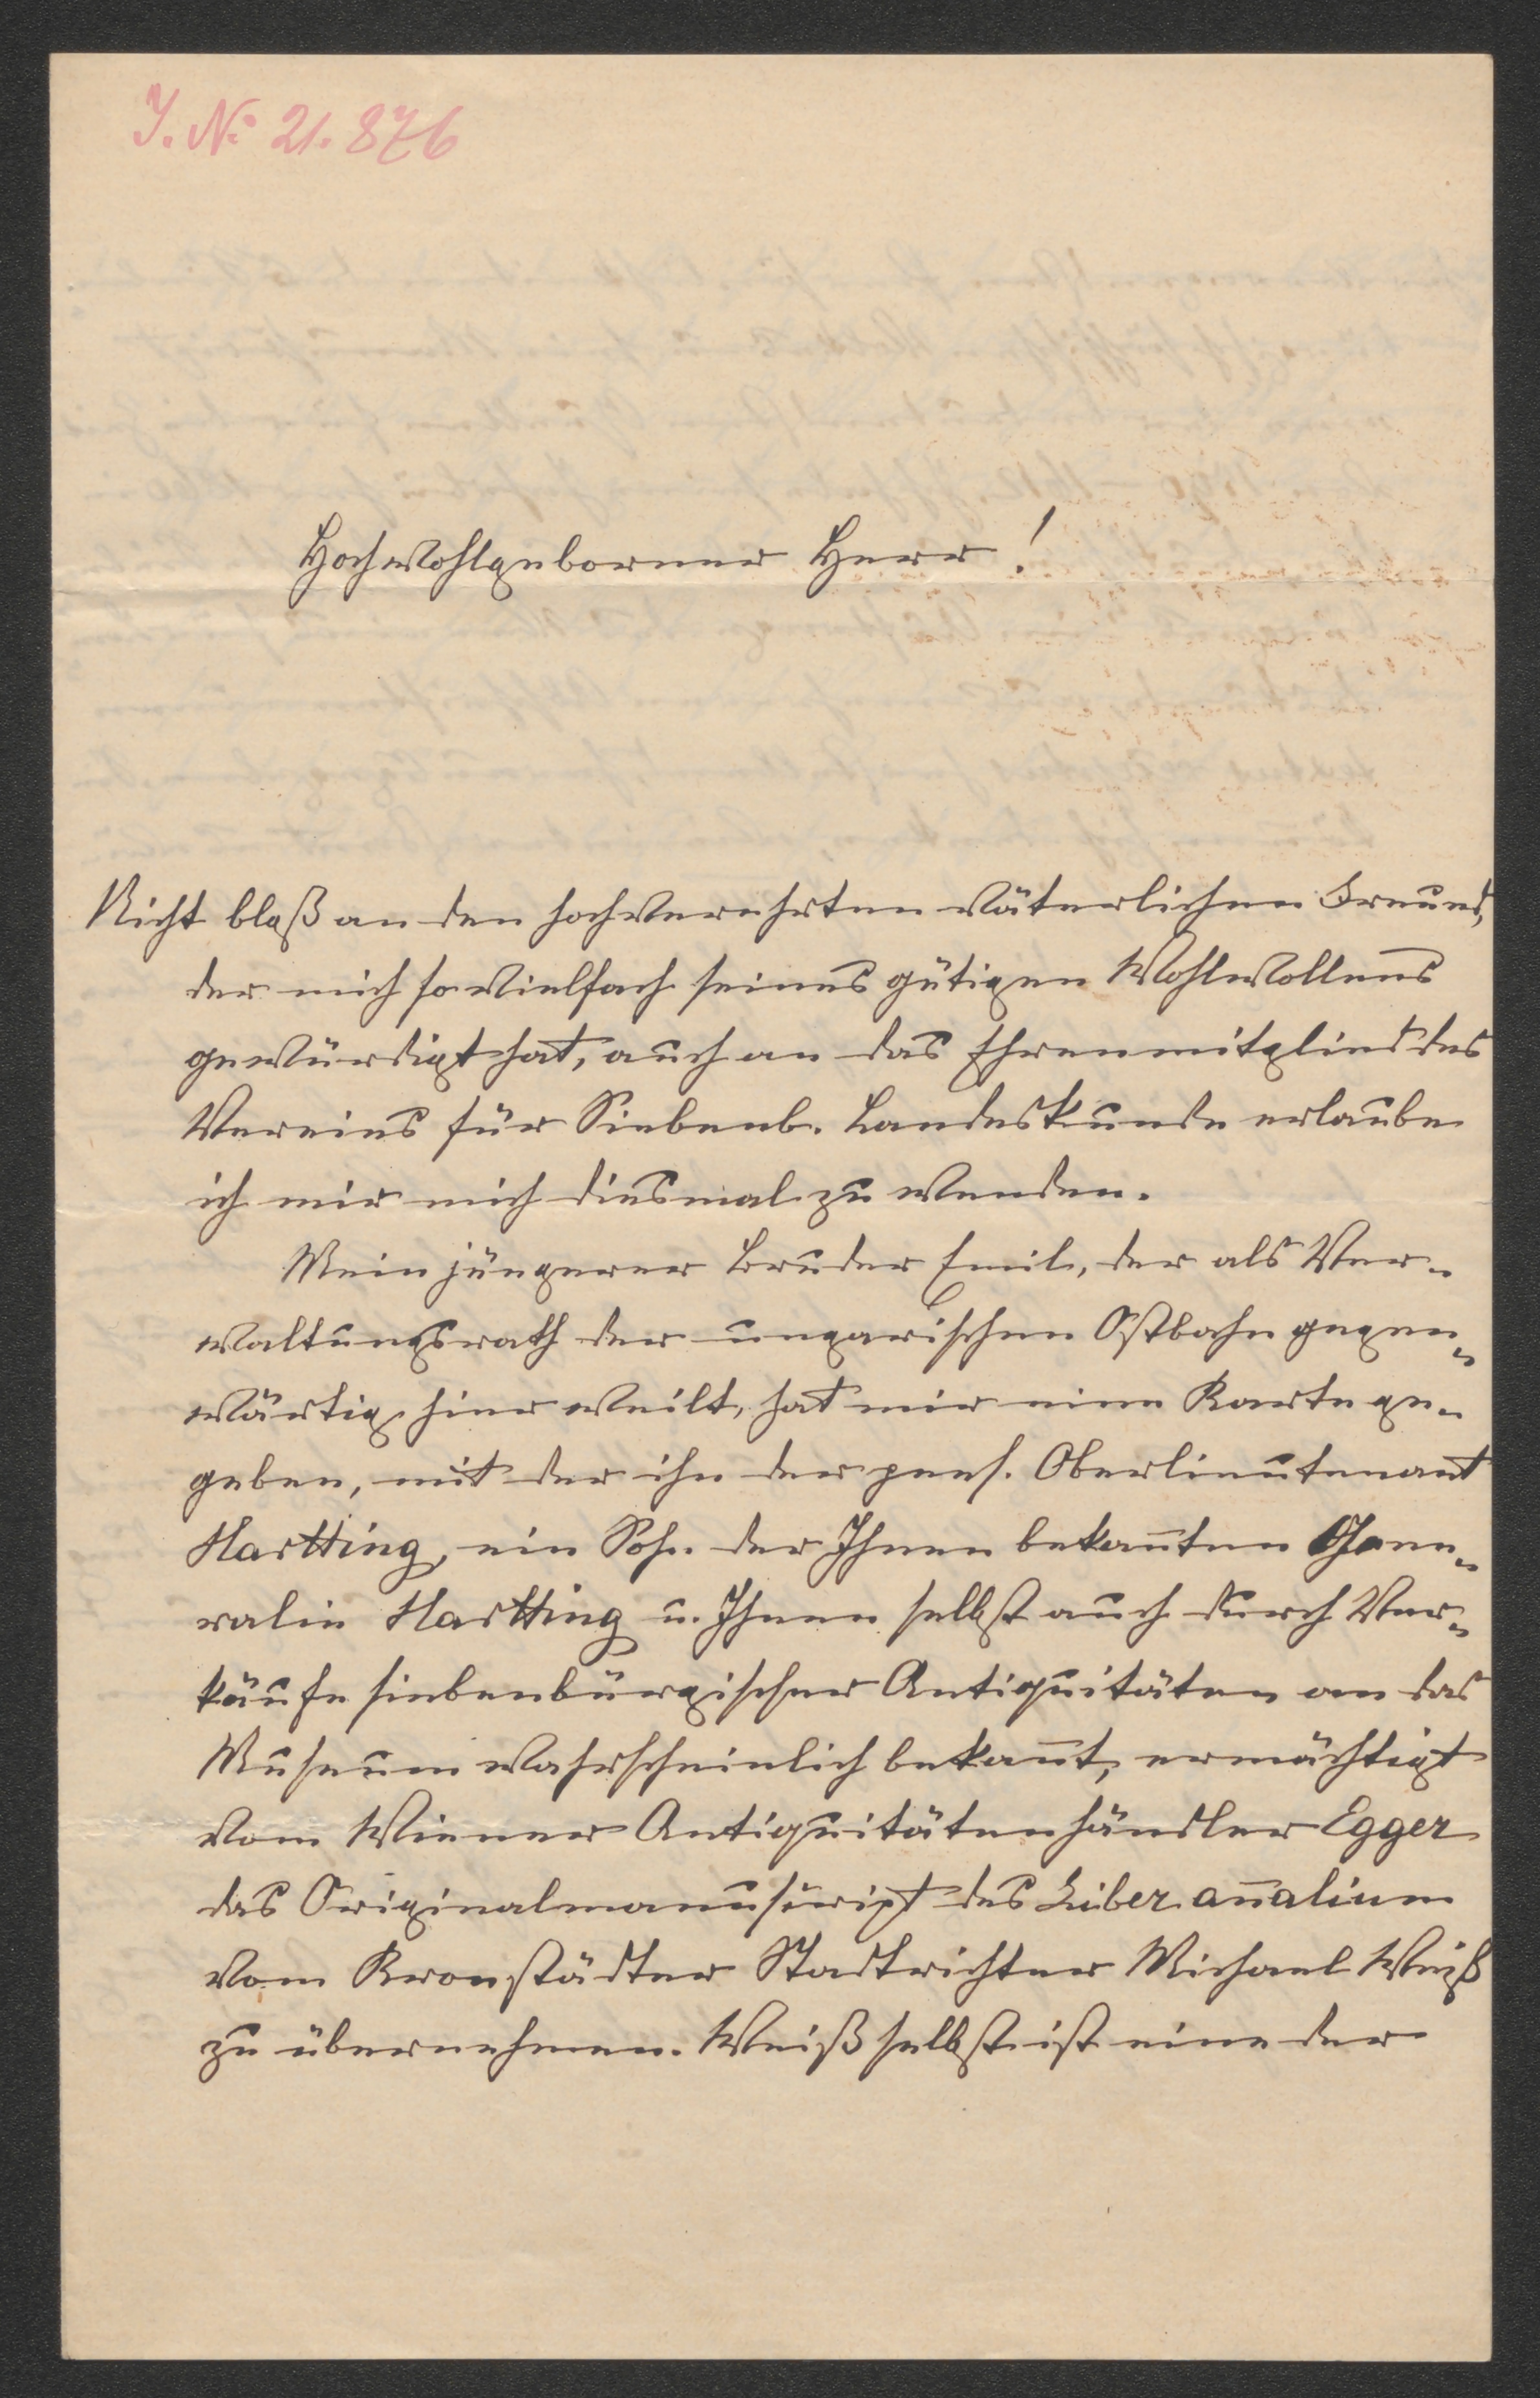 J. No 21.876
Hochwohlgeborner Herr!
Nicht bloß an den hochverehrten väterlichen Freund,
der mich so vielfach seines gütigen Wohlwollens
gewürdigt hat, auch an das Ehrenmitglied des
Vereins für Siebenb. Landeskunde erlaube
ich mir mich diesmal zu wenden.
Mein jüngerer Bruder Emil, der als Ver-
waltungsrath der ungarischen Ostbahn gegen-
wärtig hier weilt, hat mir eine Karte ge-
geben, mit der ihn der pens. Oberlieutenant
Hartting, ein Sohn der Ihnen bekannten Gene-
ralin Hartting u. Ihnen selbst auch durch Ver-
käufe siebenbürgischer Antiquitäten an das
Museum wahrscheinlich bekannt, ermächtigt
vom Wiener Antiquitätenhändler Egger
das Originalmanuscript des Liber annalium
vom Kronstädter Stadtrichter Michael Weiß
zu übernehmen. Weiß selbst ist eine der